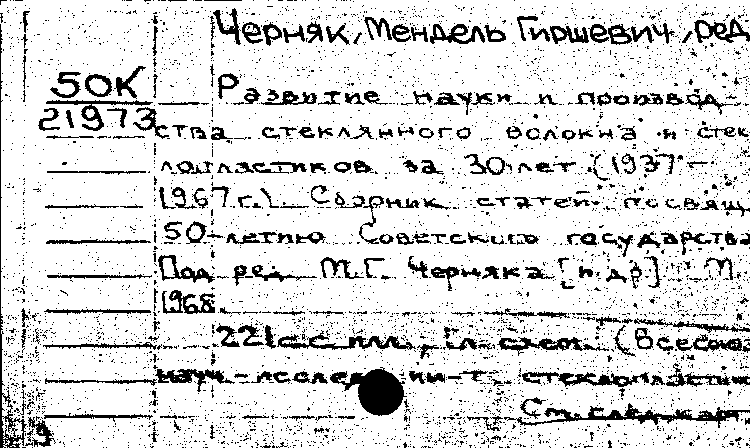 Черняк, Мендель Гиршевич, ред
50К
21973
Развитие науки и производ-
ства стеклянного волокна и стек
лопластиков за 30 лет (1937-
1967 г.). Сборник статей посвящ
50-летию Советского государства
Под ред. М.Г. Черняка [и др.] М.
1968.
221 с. с илл., 1 л. схем. (Всесоюз
науч.-исслед. ин-т стеклопластик
См. след. карт